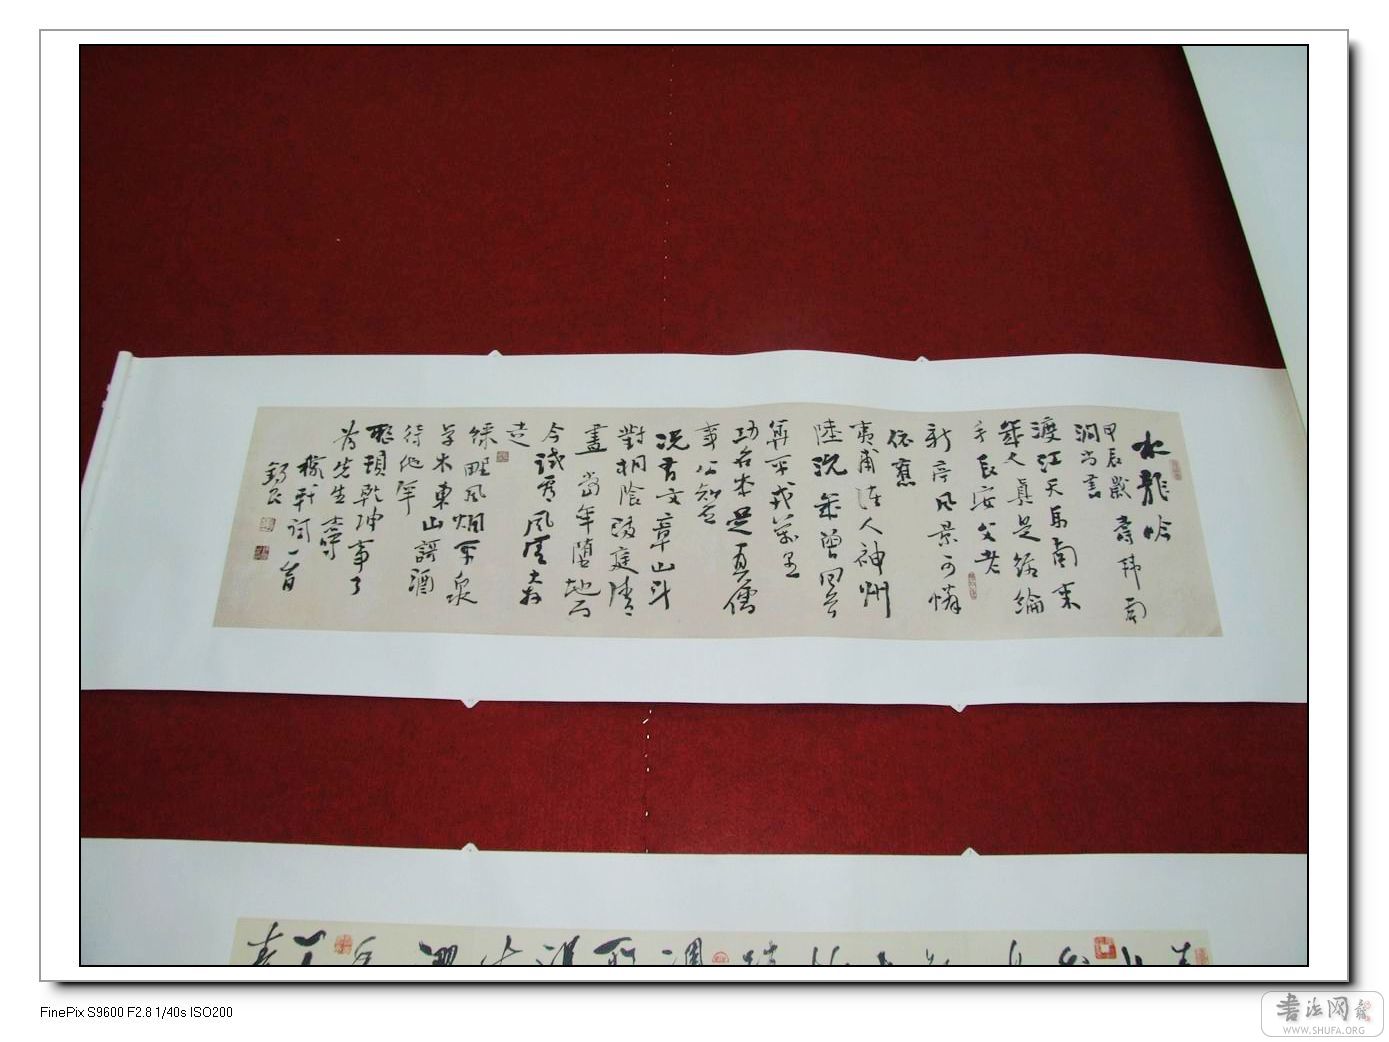 水龍吟
甲辰歲壽韓南
澗尚書
渡江天馬南來
幾人真是經綸
手長安父老
新亭風景可憐
依舊
夷甫諸人神州
陸沉幾曾回首
算平戎萬里
功名本是真儒
事公知否
況有文章山斗
對桐陰滿庭清
晝當年墮地而
今試看風雲奔
走
綠野風烟平泉
草木東山謌酒
待他年
整頓乾坤事了
為先生壽
稼軒詞一首
FinePix S9600 F2.8 1/40s ISO200
書法网
WWW.SHUFA.ORG